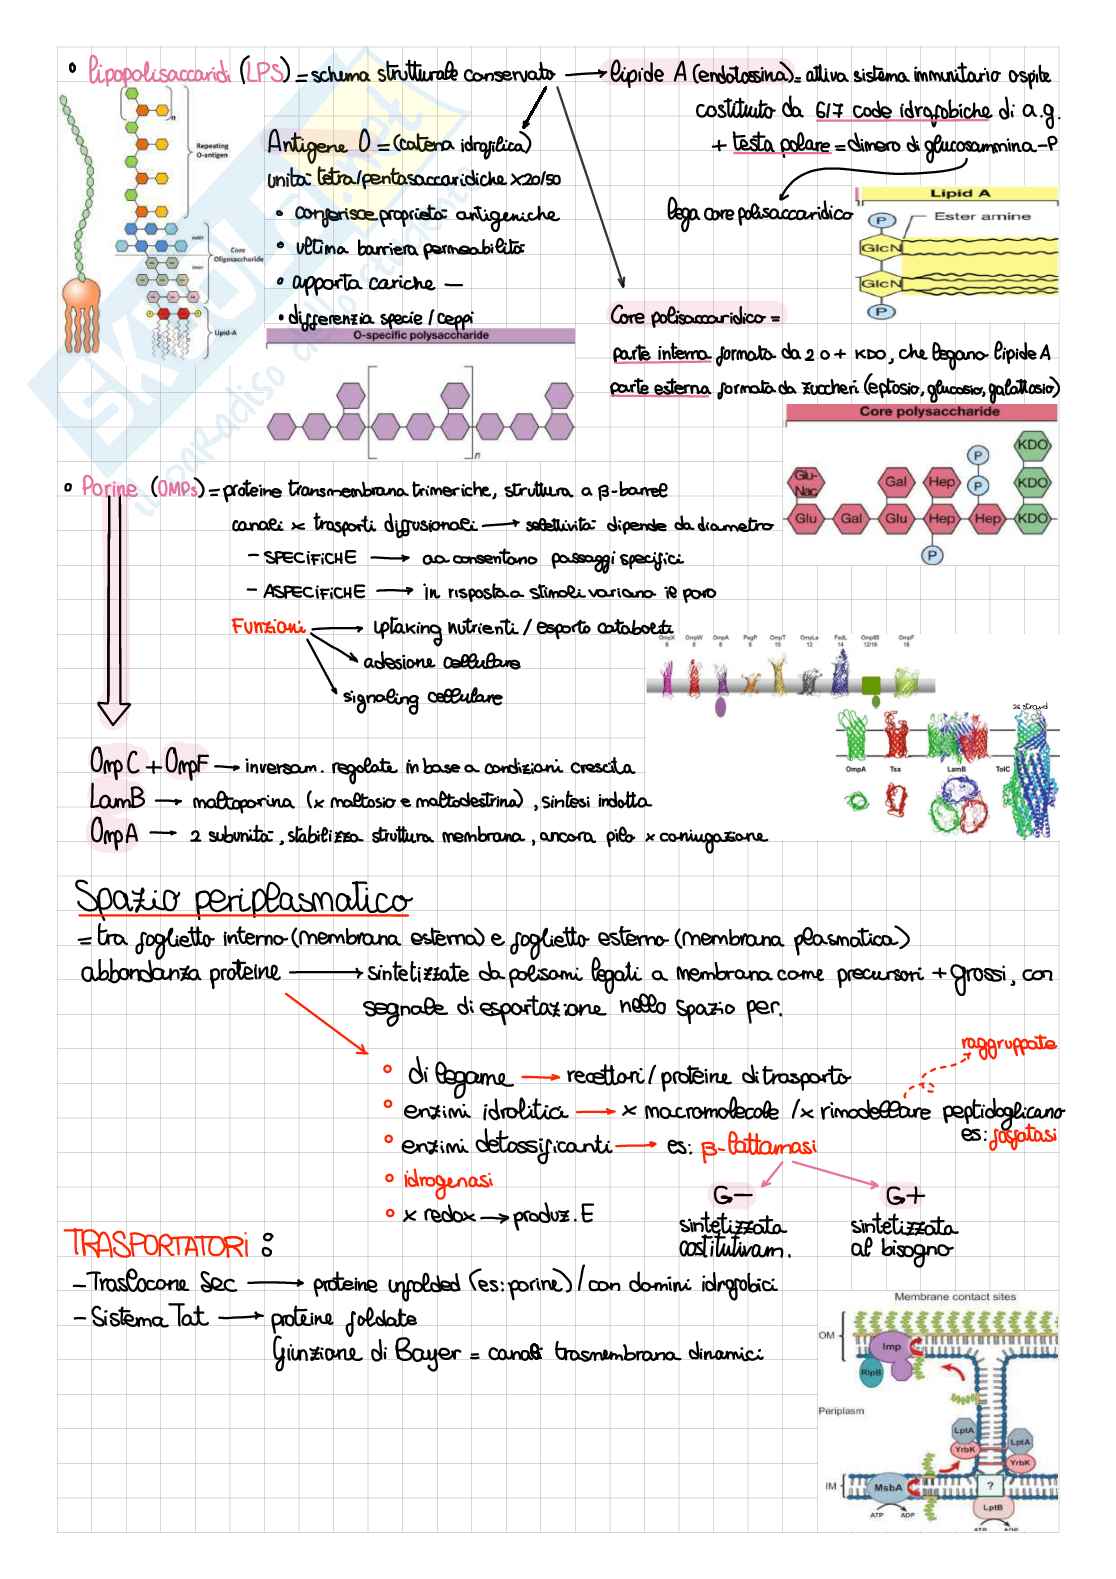 • lipopolisaccaridi (LPS) = schema strutturale conservato → lipide A (endotossina) = attiva sistema immunitario ospite
costituito da 6/7 code idrofobiche di a.g.
+ testa polare = dimero di glucosammina-P
lega core polisaccaridico
Antigene O = (catena idrofilica)
unità tetra/pentasaccaridiche x20/50
• conferisce proprietà antigeniche
• ultima barriera permeabilità
• apporta cariche —
• differenzia specie / ceppi
n
Repeating
O-antigen
Core
Oligosaccharide
Lipid-A
Lipid A
P
Ester amine
GlcN
GlcN
P
O-specific polysaccharide
n
Core polisaccaridico =
parte interna formata da 2 o + KDO, che legano lipide A
parte esterna formata da zuccheri (eptosio, glucosio, galattosio)
Core polysaccharide
Glu-Nac
Gal
Hep
P
P
KDO
KDO
Glu
Gal
Glu
Hep
Hep
KDO
P
• Porine (OMPs) = proteine transmembrana trimeriche, struttura a β-barrel
canali x trasporti diffusionali → selettività dipende da diametro
– SPECIFICHE → aa consentano passaggi specifici
– ASPECIFICHE → in risposta a stimoli variano il poro
Funzioni → uptaking nutrienti / esporto cataboliti
adesione cellulare
signaling cellulare
OmpX OmpW OmpA PagP OmpT OmpLa FadL OmpF
8 8 8 8 10 12 14 16
OmpA
Tsx
LamB
TolC
OmpC + OmpF → inversam. regolate in base a condizioni crescita
LamB → maltoporina (x maltosio e maltodestrina), sintesi indotta
OmpA → 2 subunità, stabilizza struttura membrana, ancora pilo x coniugazione
Spazio periplasmatico
= tra foglietto interno (membrana esterna) e foglietto esterno (membrana plasmatica)
abbondanza proteine → sintetizzate da polisomi legati a membrana come precursori + grossi, con
segnale di esportazione nello spazio per.
raggruppate
• di legame → recettori / proteine di trasporto
• enzimi idrolitici → x macromolecole / x rimodellare peptidoglicano
es: fosfatasi
• enzimi detossificanti → es: β-lattamasi
• idrogenasi
• x redox → produz. E
G–
sintetizzata
costitutivam.
G+
sintetizzata
al bisogno
TRASPORTATORI :
– Traslocone Sec → proteine unfolded (es: porine) / con domini idrofobici
– Sistema Tat → proteine foldate
Giunzione di Bayer = canali trasmembrana dinamici
Membrane contact sites
OM
Imp
RlpB
Periplasm
LptA
YrbK
LptA
YrbK
IM
MsbA
?
LptB
ATP ADP
ATP ADP